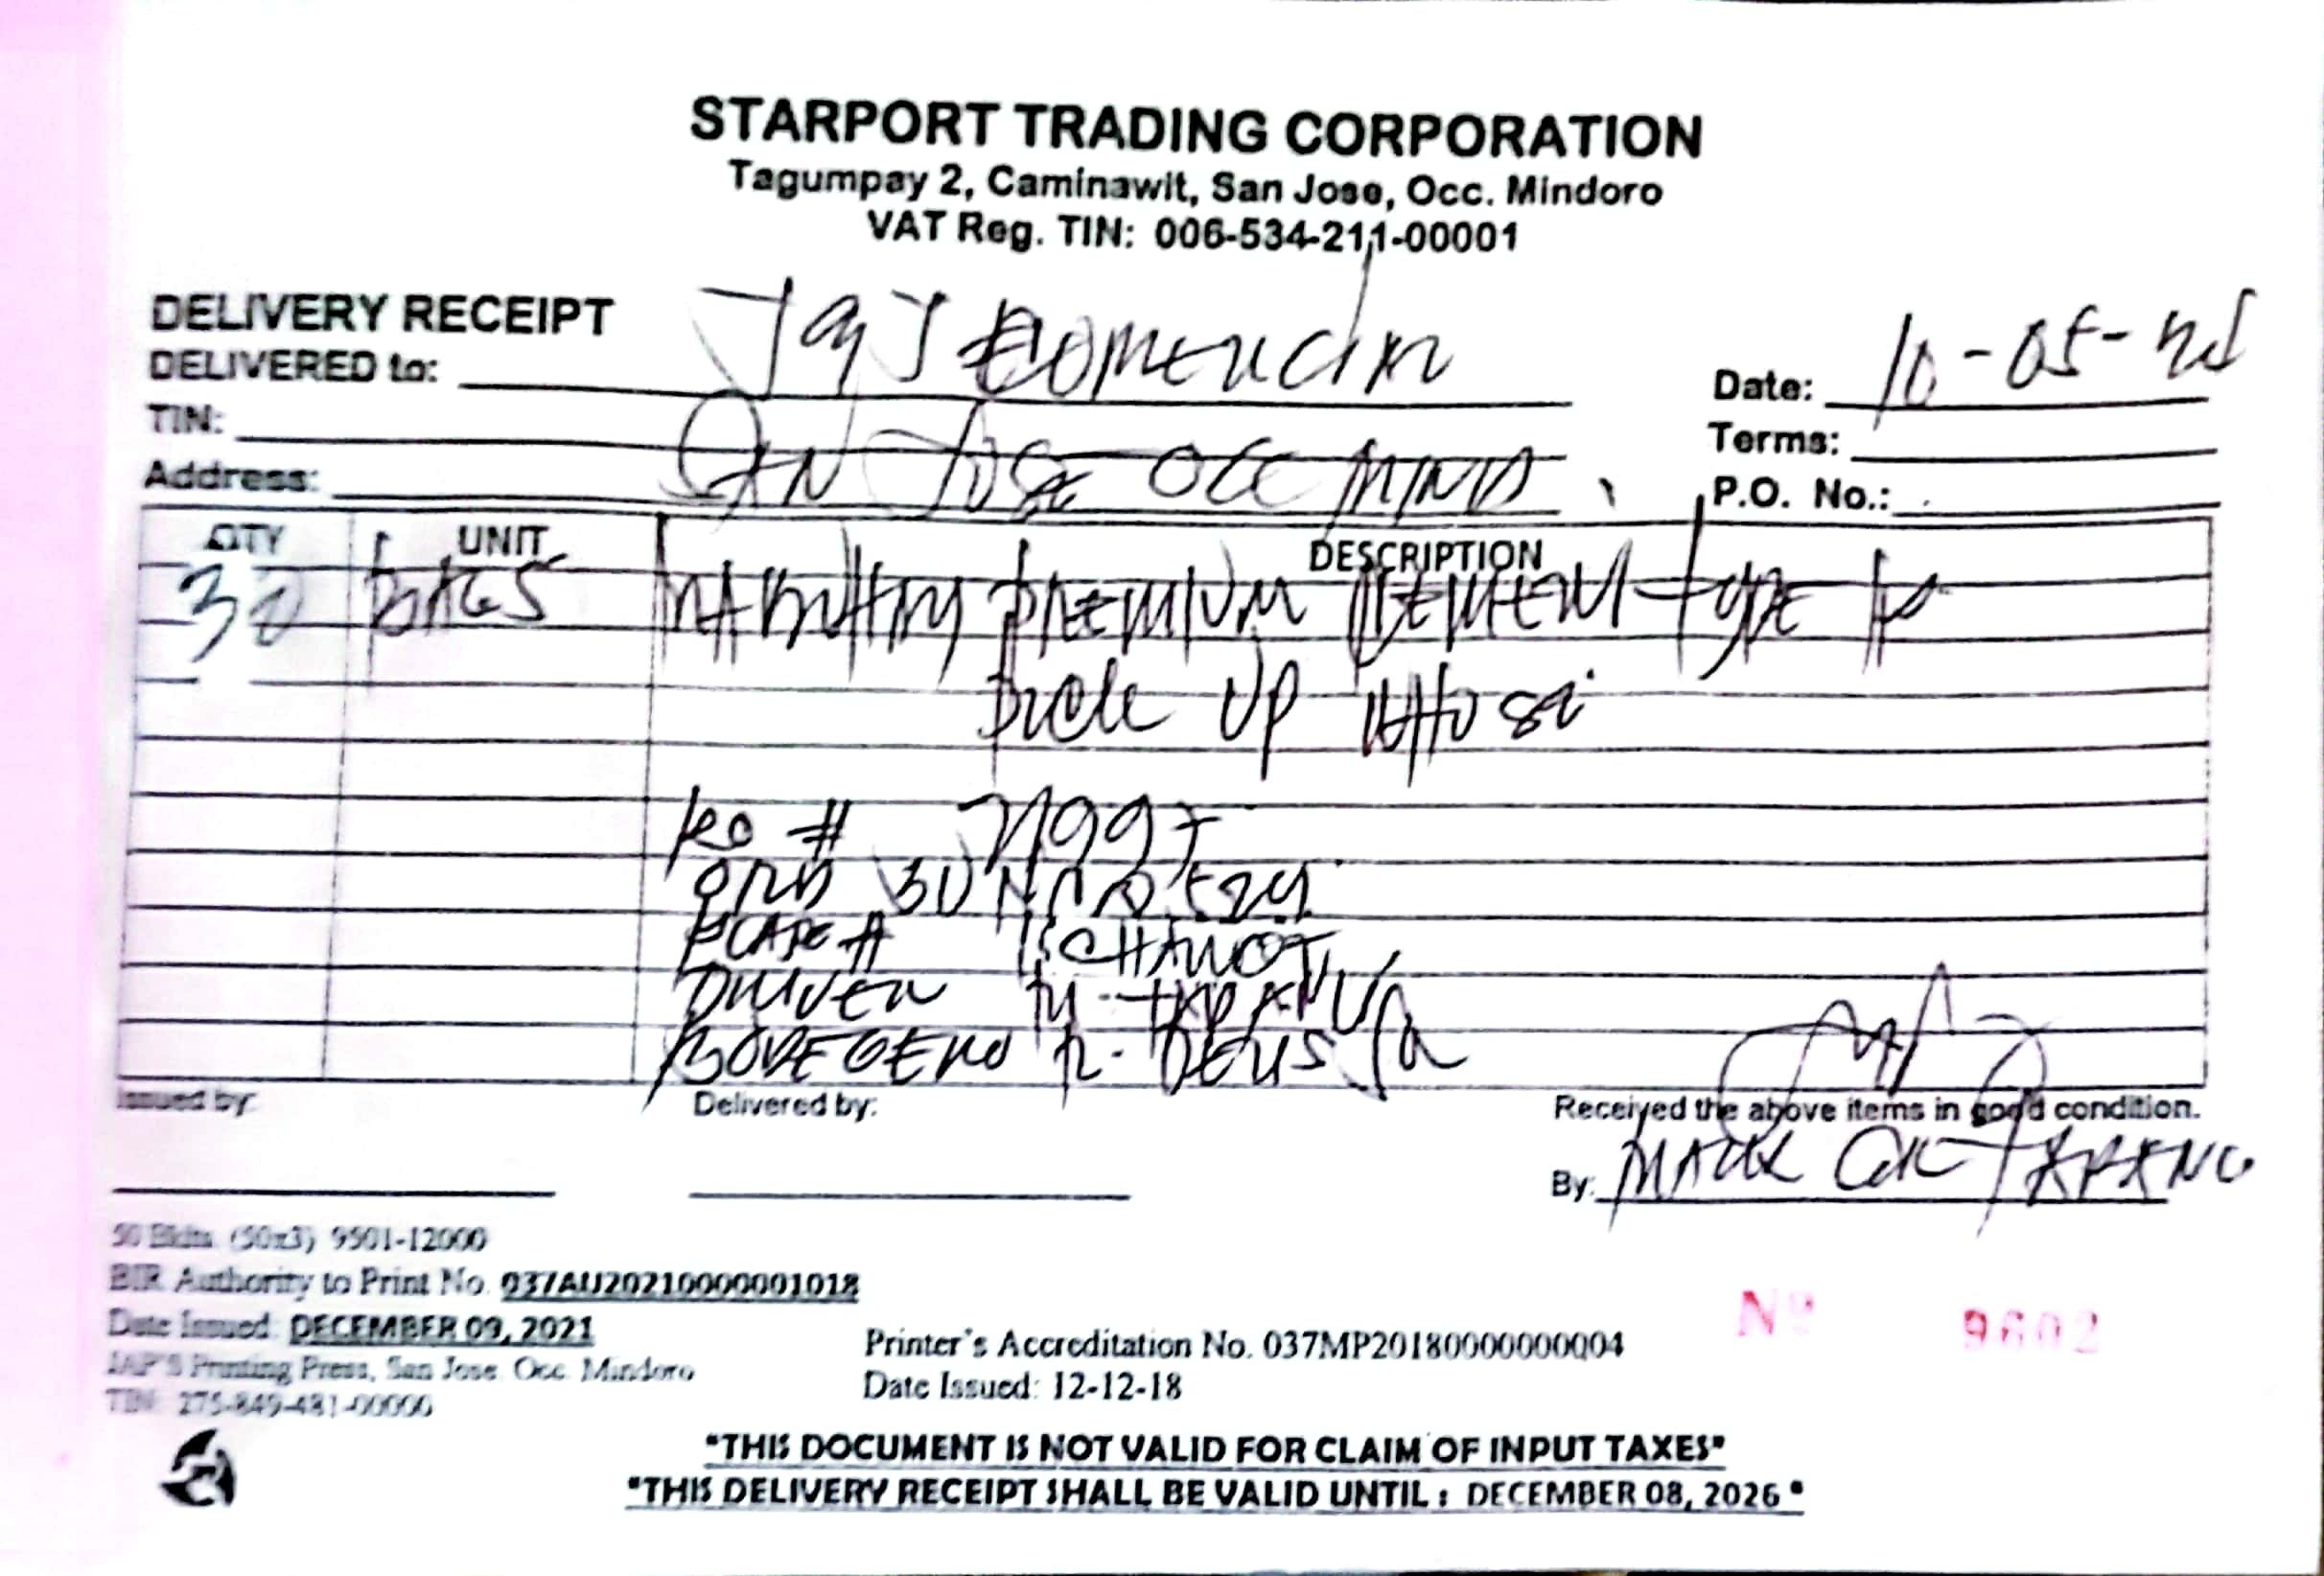 STARPORT TRADING CORPORATION
Tagumpay 2, Caminawit, San Jose, Occ. Mindoro
VAT Reg. TIN: 006-534-211-00001
DELIVERY RECEIPT
DELIVERED to: J9J
Date: 10-05-
TIN:
Terms:
Address: SAN JOSE OCC MIND
P.O. No.:
QTY UNIT DESCRIPTION
30 BAGS PREMIUM CEMENT TYPE 1P
Pick UP
RO #
PLATE #
DRIVER
BODEGERO R.
Issued by:
Delivered by:
Received the above items in good condition.
By: MARK
50 Bklts. (50x3) 9501-12000
BIR Authority to Print No. 037AU20210000001018
Date Issued: DECEMBER 09, 2021
JAP'S Printing Press, San Jose. Occ. Mindoro
TIN: 275-849-481-00000
Printer's Accreditation No. 037MP20180000000004
Date Issued: 12-12-18
Nº 9602
"THIS DOCUMENT IS NOT VALID FOR CLAIM OF INPUT TAXES"
"THIS DELIVERY RECEIPT SHALL BE VALID UNTIL : DECEMBER 08, 2026 "